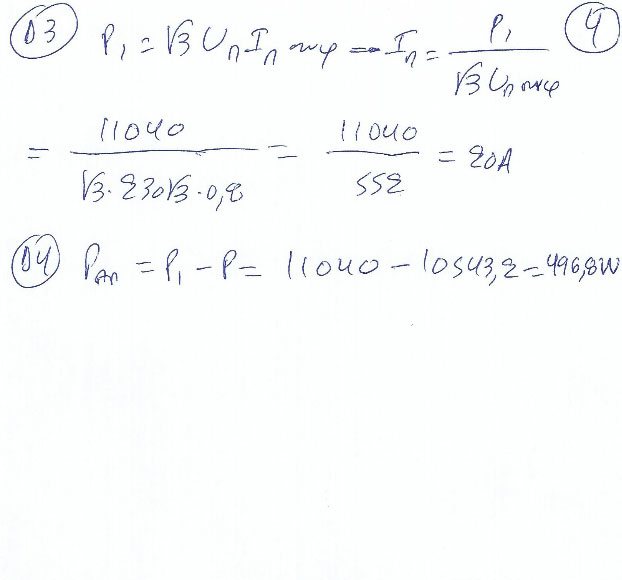 Δ3 P₁ = √3 Uₙ Iₙ συνφ ⟹ Iₙ = P₁ / √3 Uₙ συνφ 4
= 11040 / √3 · 230√3 · 0,8 = 11040 / 552 = 20A
Δ4 Pαπ = P₁ - P = 11040 - 10543,2 = 496,8W